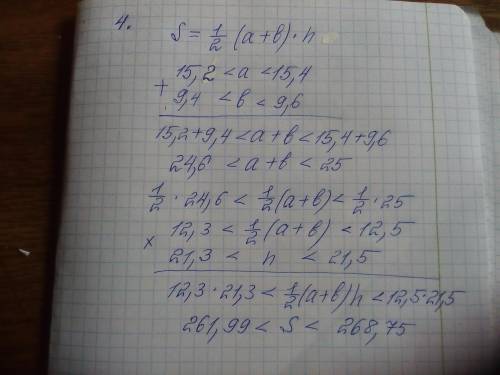 4.
S = 1/2 (a+b)·h
15,2 < a < 15,4
+
9,4 < b < 9,6
15,2+9,4 < a+b < 15,4+9,6
24,6 < a+b < 25
1/2 · 24,6 < 1/2(a+b) < 1/2 · 25
12,3 < 1/2(a+b) < 12,5
x
21,3 < h < 21,5
12,3·21,3 < 1/2(a+b)h < 12,5·21,5
261,99 < S < 268,75